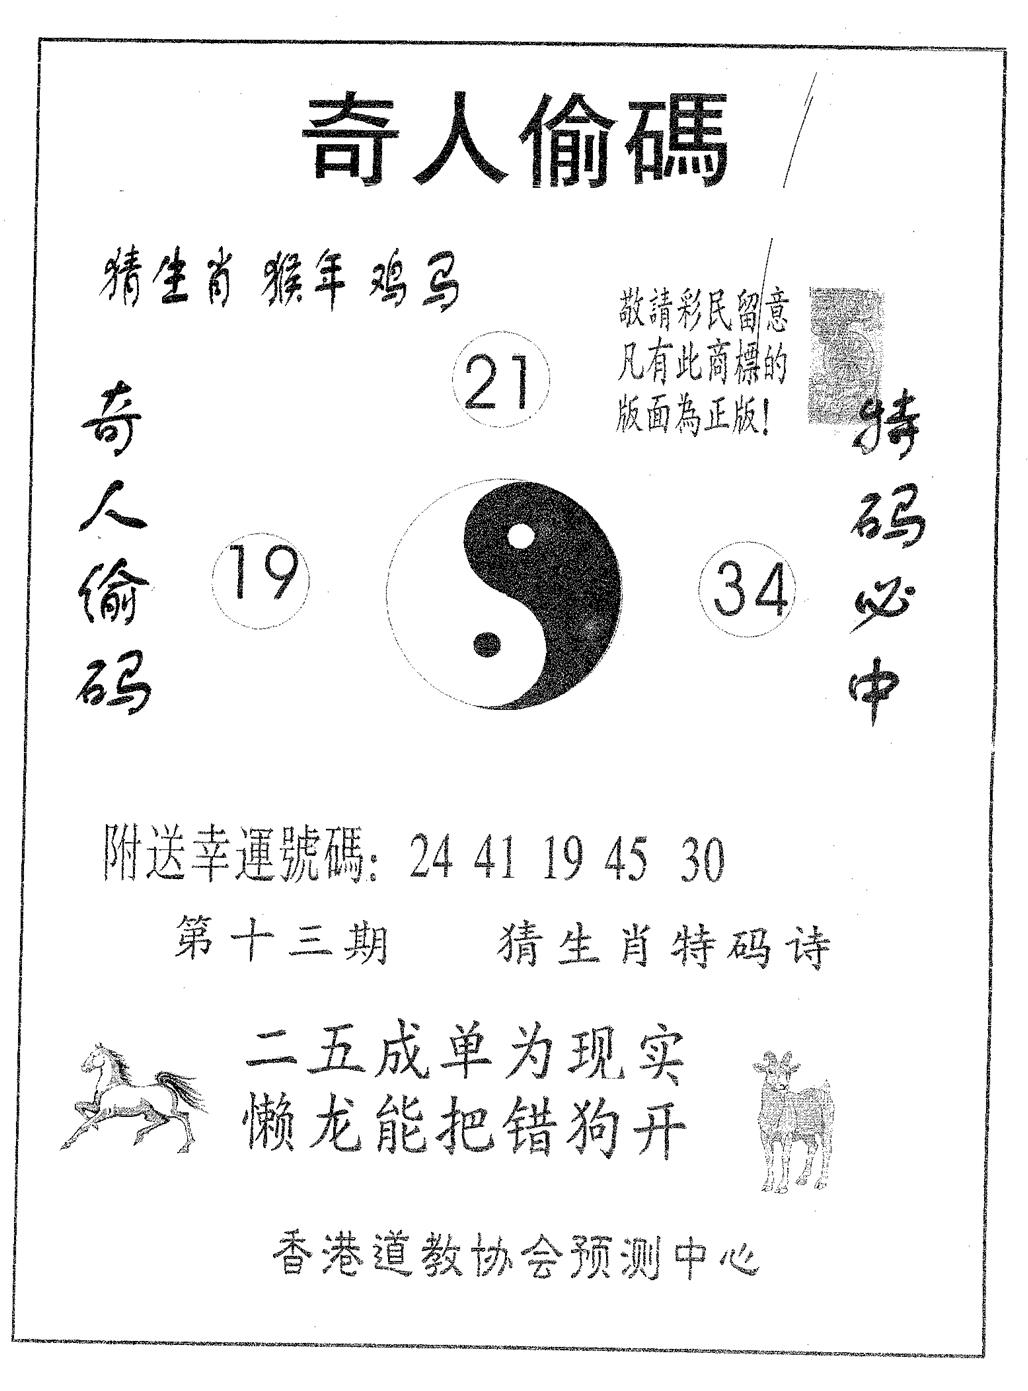 奇人偷碼
猜生肖 猴年 鸡马
敬請彩民留意
凡有此商標的
版面為正版!
21
奇人偷码
特码必中
19
34
附送幸運號碼: 24 41 19 45 30
第十三期 猜生肖特码诗
二五成单为现实
懒龙能把错狗开
香港道教协会预测中心